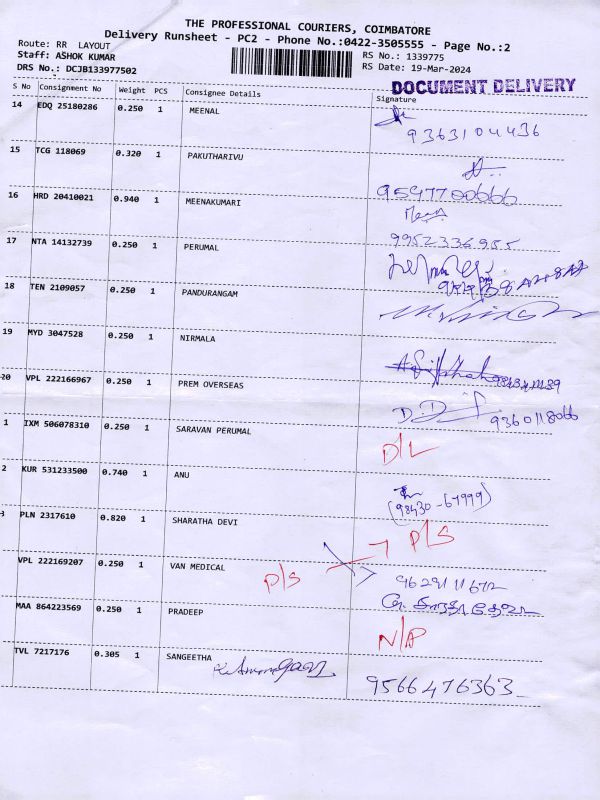 THE PROFESSIONAL COURIERS, COIMBATORE
Delivery Runsheet - PC2 - Phone No.:0422-3505555 - Page No.:2
Route: RR LAYOUT
Staff: ASHOK KUMAR
DRS No.: DCJB133977502
RS No.: 1339775
RS Date: 19-Mar-2024
DOCUMENT DELIVERY
S No Consignment No Weight PCS Consignee Details Signature
14 EDQ 25180286 0.250 1 MEENAL
9363104436
15 TCG 118069 0.320 1 PAKUTHARIVU
9597700666
16 HRD 20410021 0.940 1 MEENAKUMARI
9952336955
17 NTA 14132739 0.250 1 PERUMAL
18 TEN 2109057 0.250 1 PANDURANGAM
19 MYD 3047528 0.250 1 NIRMALA
20 VPL 222166967 0.250 1 PREM OVERSEAS
9360118066
1 IXM 506078310 0.250 1 SARAVAN PERUMAL
D/L
2 KUR 531233500 0.740 1 ANU
(98430-67999)
3 PLN 2317610 0.820 1 SHARATHA DEVI
P/S
VPL 222169207 0.250 1 VAN MEDICAL
P/S
9629111672
MAA 864223569 0.250 1 PRADEEP
N/A
TVL 7217176 0.305 1 SANGEETHA
9566476363